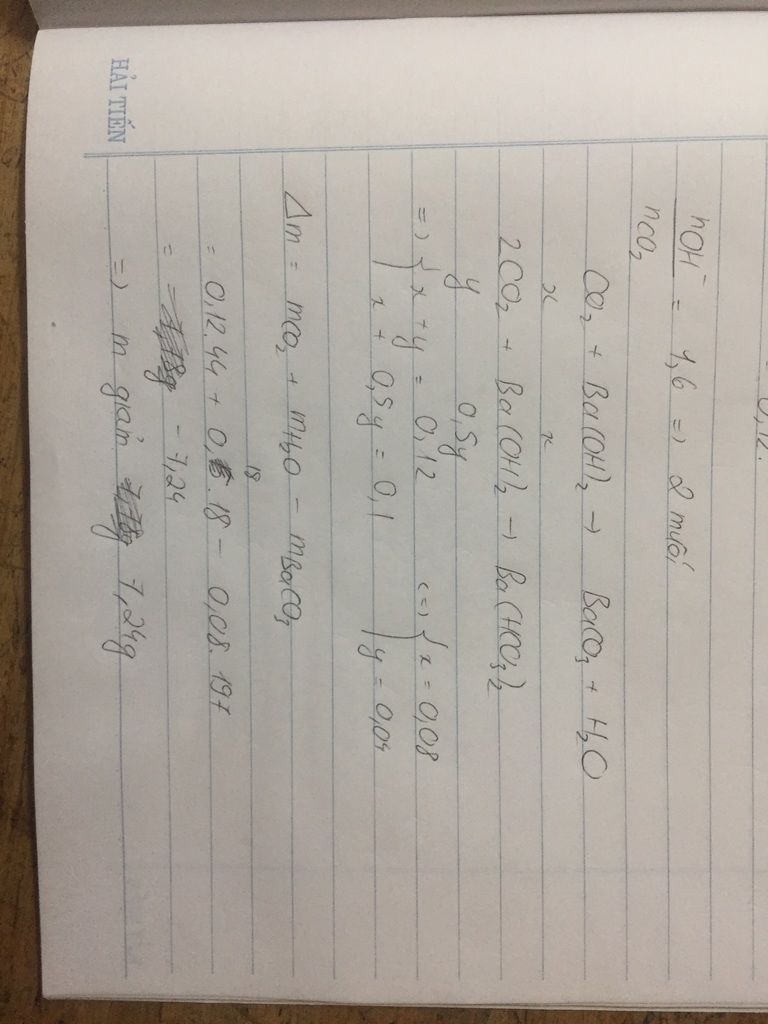 0,12.
nOH⁻ / nCO₂ = 1,6 => 2 muối
CO₂ + Ba(OH)₂ → BaCO₃ + H₂O
x x
2CO₂ + Ba(OH)₂ → Ba(HCO₃)₂
y 0,5y
=> { x + y = 0,12 <=> { x = 0,08
x + 0,5y = 0,1 y = 0,04
Δm = mCO₂ + mH₂O - mBaCO₃
= 0,12.44 + 0,18.18 - 0,08.197
= - 7,24
=> m giảm 7,24g
HẢI TIẾN